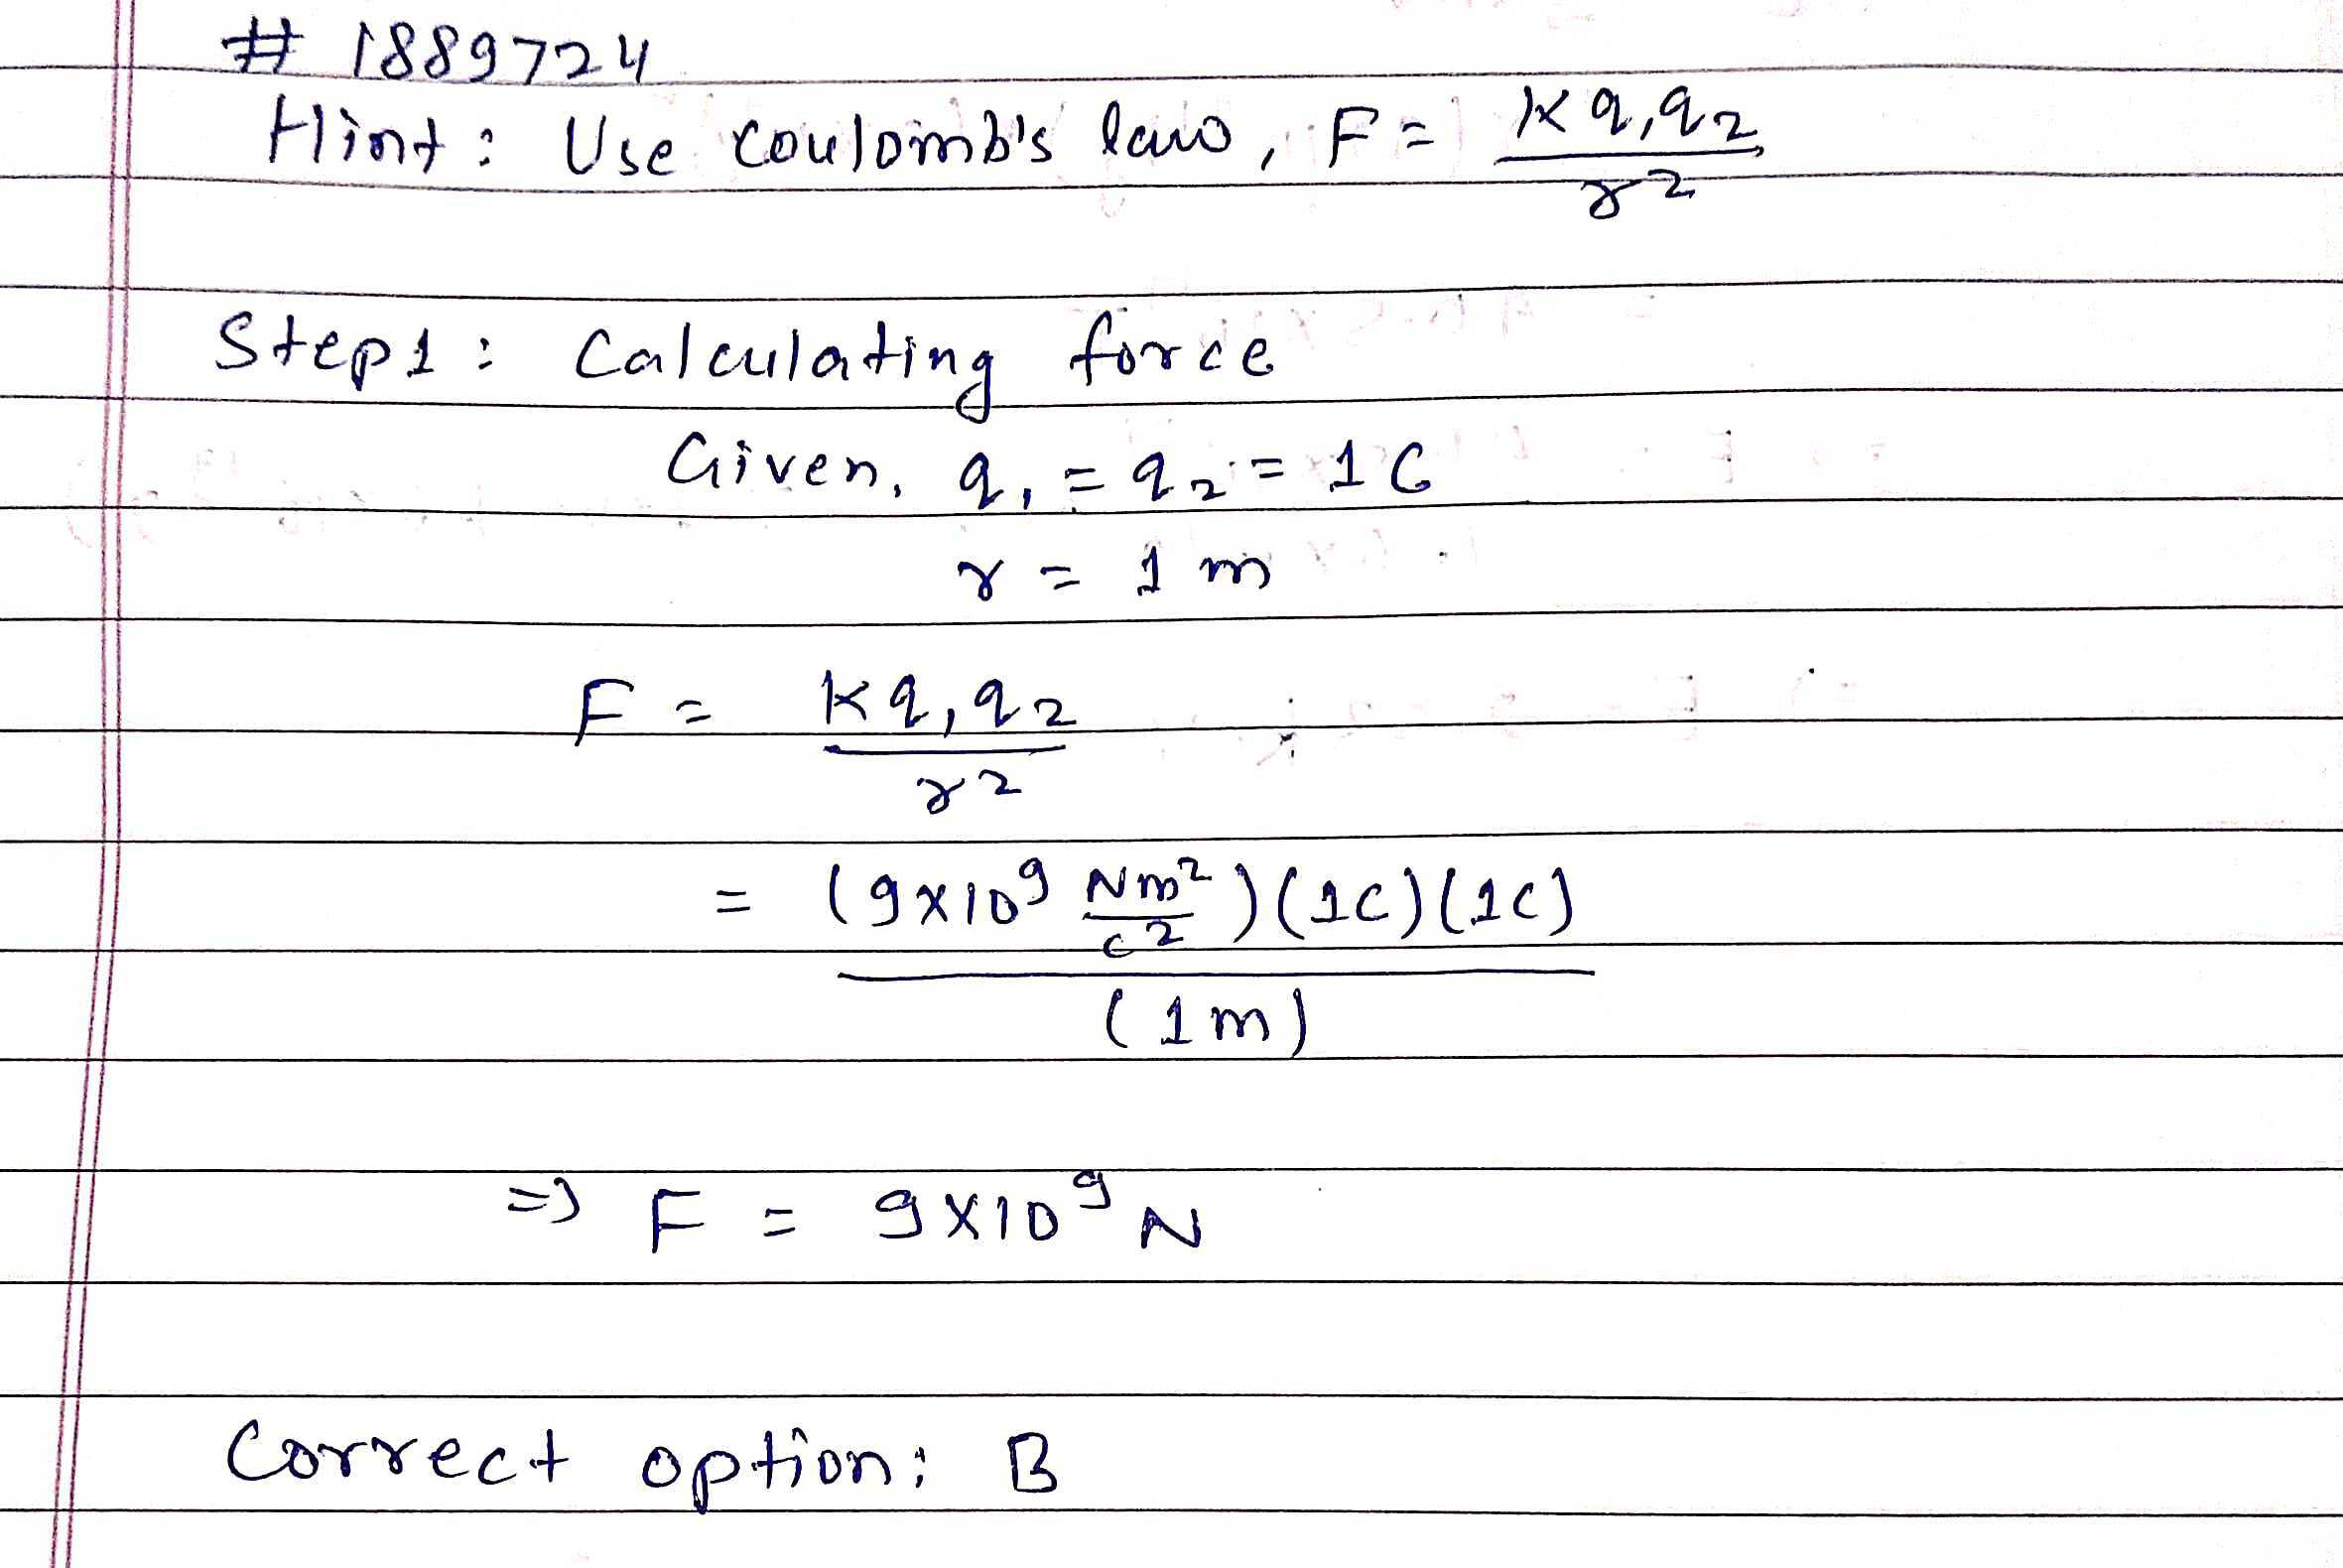 # 1889724
Hint : Use coulomb's law, F = Kq₁q₂ / r²
Step 1 : Calculating force
Given, q₁ = q₂ = 1 C
r = 1 m
F = Kq₁q₂ / r²
= (9×10⁹ Nm²/C²) (1C) (1C) / (1m)
=> F = 9×10⁹ N
Correct option : B